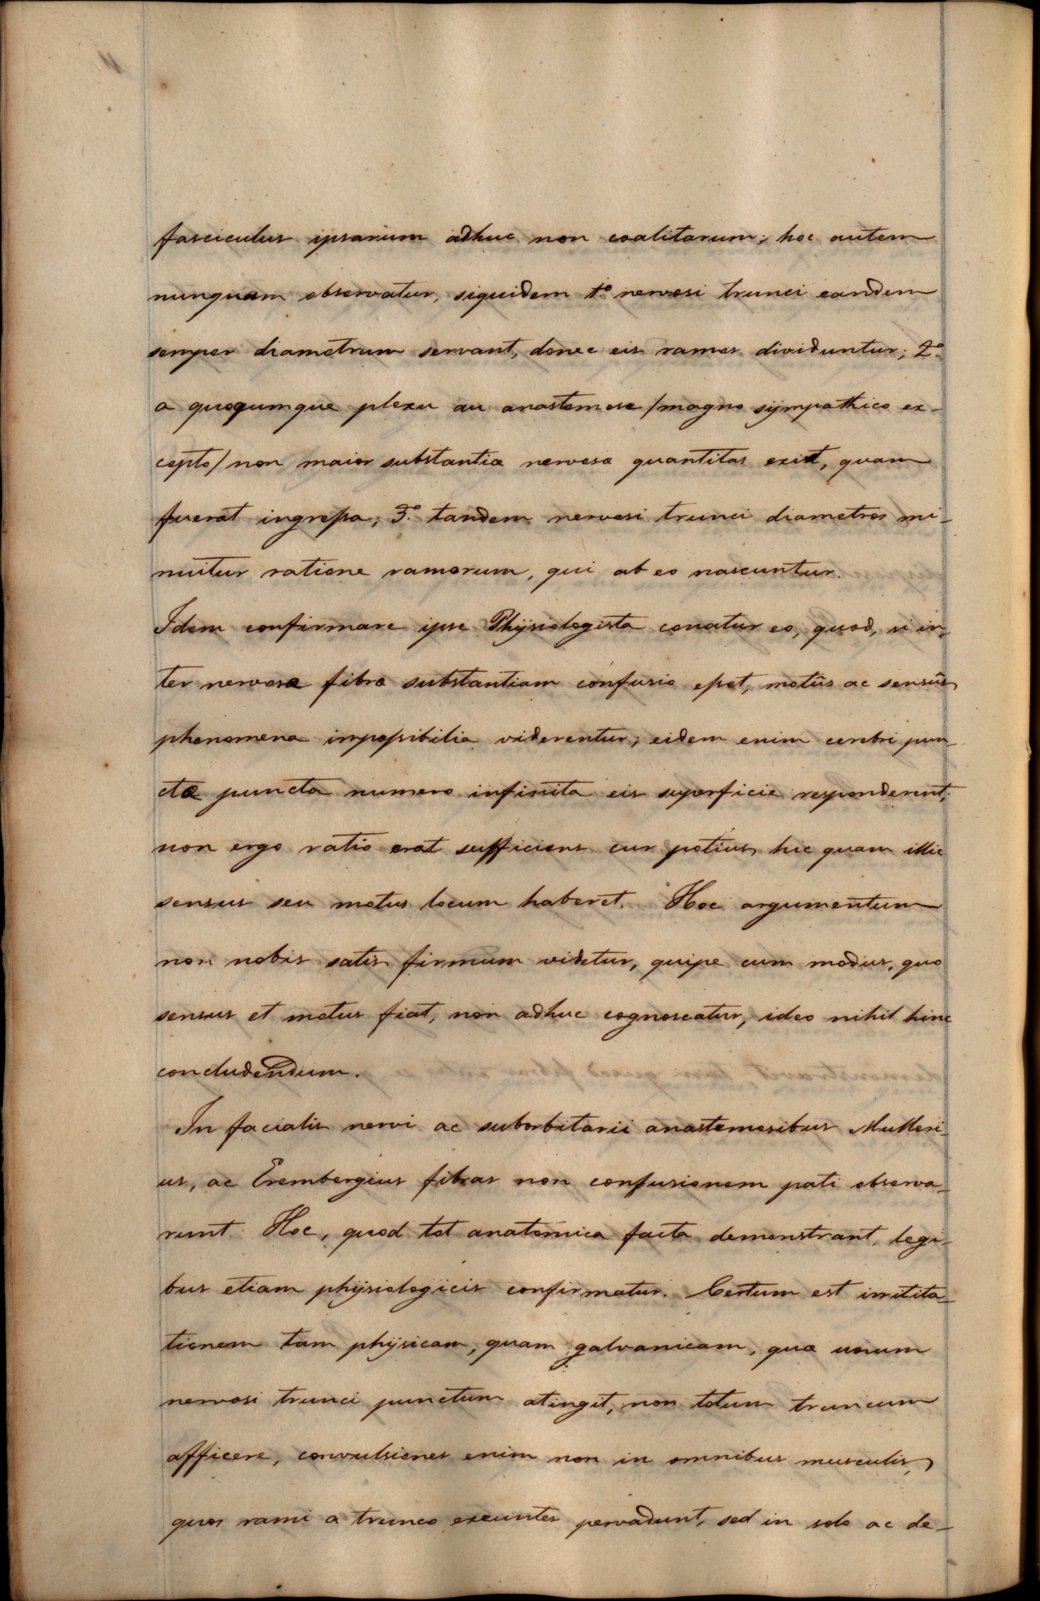 fasciculus ipsarum adhuc non coalitarum; hoc autem
nunquam observatur, siquidem 1.º nervosi trunci eandem
semper diametrum servant, donec eis ramos dividuntur; 2.º
a quoqumque plexu au anastomose /magno sympathico ex-
cepto/ non maior substantiæ nervosæ quantitas exit, quam
fuerat ingressa; 3.º tandem nervosi trunci diametros mi-
nuitur ratione ramorum, qui ab eo nascuntur.
Idem confirmare ipse Physiologista conatur eo, quod, si in-
ter nervosæ fibræ substantiam confusio esset, motûs ac sensûs
phenomena impossibilia viderentur; eidem enim cerebri pun-
cto puncta numero infinita eis superficie responderent;
non ergo ratio erat sufficiens cur potius hic quam illic
sensus seu motus locum haberet. Hoc argumentum
non nobis satis firmum videtur, quipe cum modus, quo
sensus et motus fiat, non adhuc cognoscatur, ideo nihil hinc
concludendum.
In facialis nervi ac suborbitarii anastomosibus Mulleri-
us, ac Erembergius fibras non confusionem pati observa-
runt. Hoc, quod tot anatomica facta demonstrant, legi-
bus etiam physiologicis confirmatur. Certum est irritita-
tionem tam physicam, quam galvanicam, quæ unum
nervosi trunci punctum atingit, non totum truncum
afficere, convulsiones enim non in omnibus musculis,
quos rami a trunco exeuntes pervadunt, sed in solo ac de-